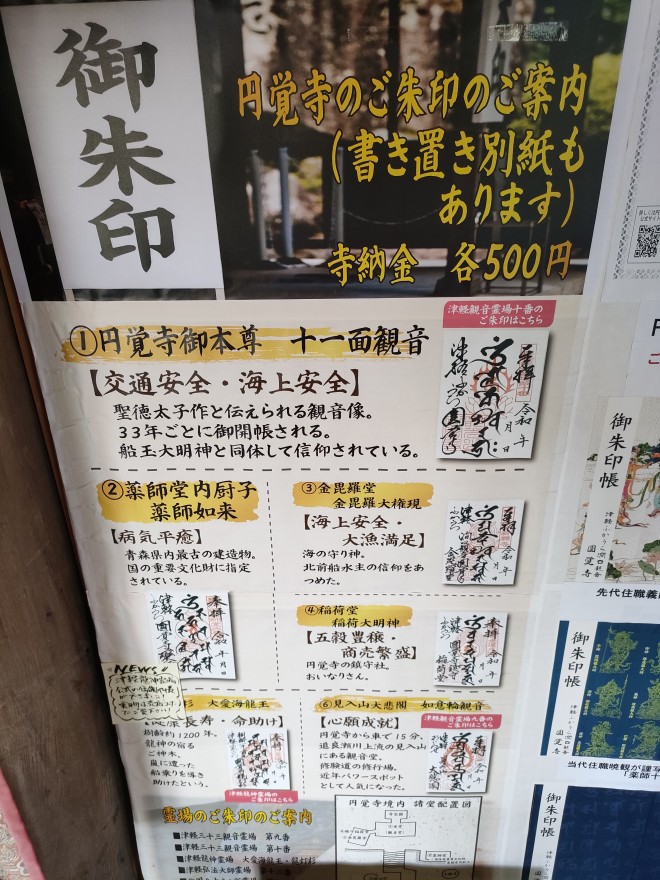 御朱印
円覚寺のご朱印のご案内
(書き置き別紙も
あります)
寺納金 各500円
津軽観音霊場十番の
ご朱印はこちら
①円覚寺御本尊 十一面観音
【交通安全・海上安全】
聖徳太子作と伝えられる観音像。
33年ごとに御開帳される。
船玉大明神と同体して信仰されている。
奉拝
令和 年 月 日
②薬師堂内厨子
薬師如来
【病気平癒】
青森県内最古の建造物。
国の重要文化財に指定
されている。
奉拝
③金毘羅堂
金毘羅大権現
【海上安全・
大漁満足】
海の守り神。
北前船水主の信仰をあ
つめた。
④稲荷堂
稲荷大明神
【五穀豊穣・
商売繁盛】
円覚寺の鎮守社。
おいなりさん。
奉拝
NEWS!!
杉 大愛海龍王
長寿・命助け】
樹齢約1200年。
龍神の宿る
ご神木。
嵐に遭った
船乗りを導き
助けたという。
津軽龍神霊場の
ご朱印はこちら
⑥見入山大悲閣 如意輪観音
【心願成就】
津軽観音霊場九番の
ご朱印はこちら
円覚寺から車で15分。
追良瀬川上流の見入山
にある観音堂。
修験道の修行場。
近年パワースポット
として人気になった。
霊場のご朱印のご案内
■津軽三十三観音霊場 第九番
■津軽三十三観音霊場 第十番
■津軽龍神霊場 大愛海龍王・龍灯杉
■津軽弘法大師霊場
円覚寺境内 諸堂配置図
御朱印帳
先代住職義
御朱印帳
当代住職暁観が謹写
「薬師十
御朱印帳